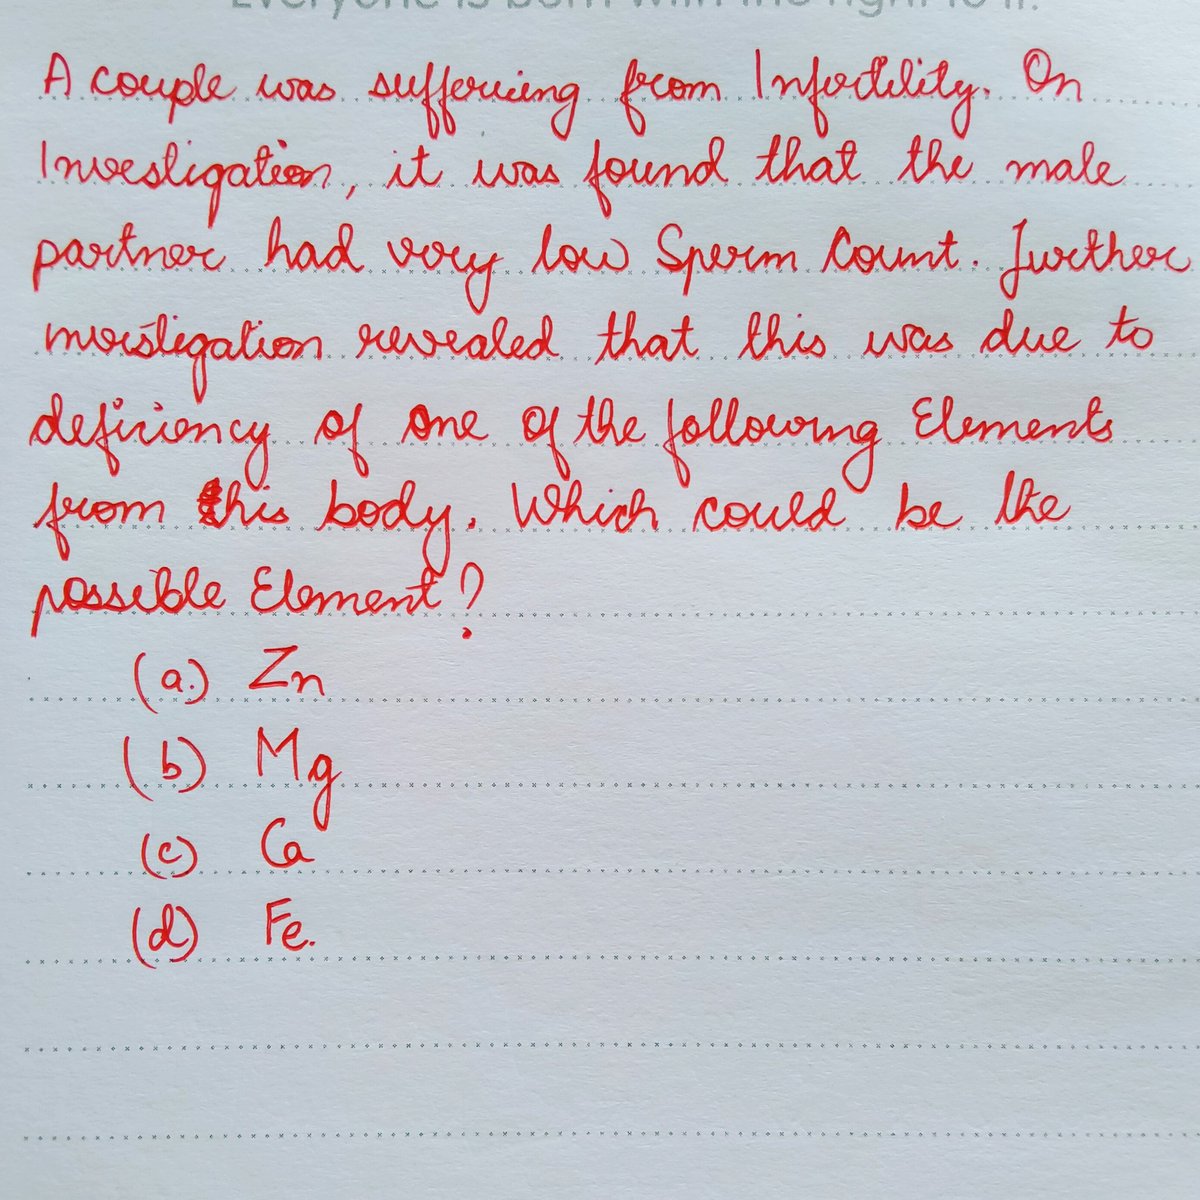 Everyone is born with the right to it.
A couple was suffering from Infertility. On
Investigation, it was found that the male
partner had very low Sperm Count. Further
investigation revealed that this was due to
deficiency of one of the following Elements
from his body. Which could be the
possible Element?
(a.) Zn
(b) Mg
(c) Ca
(d) Fe.